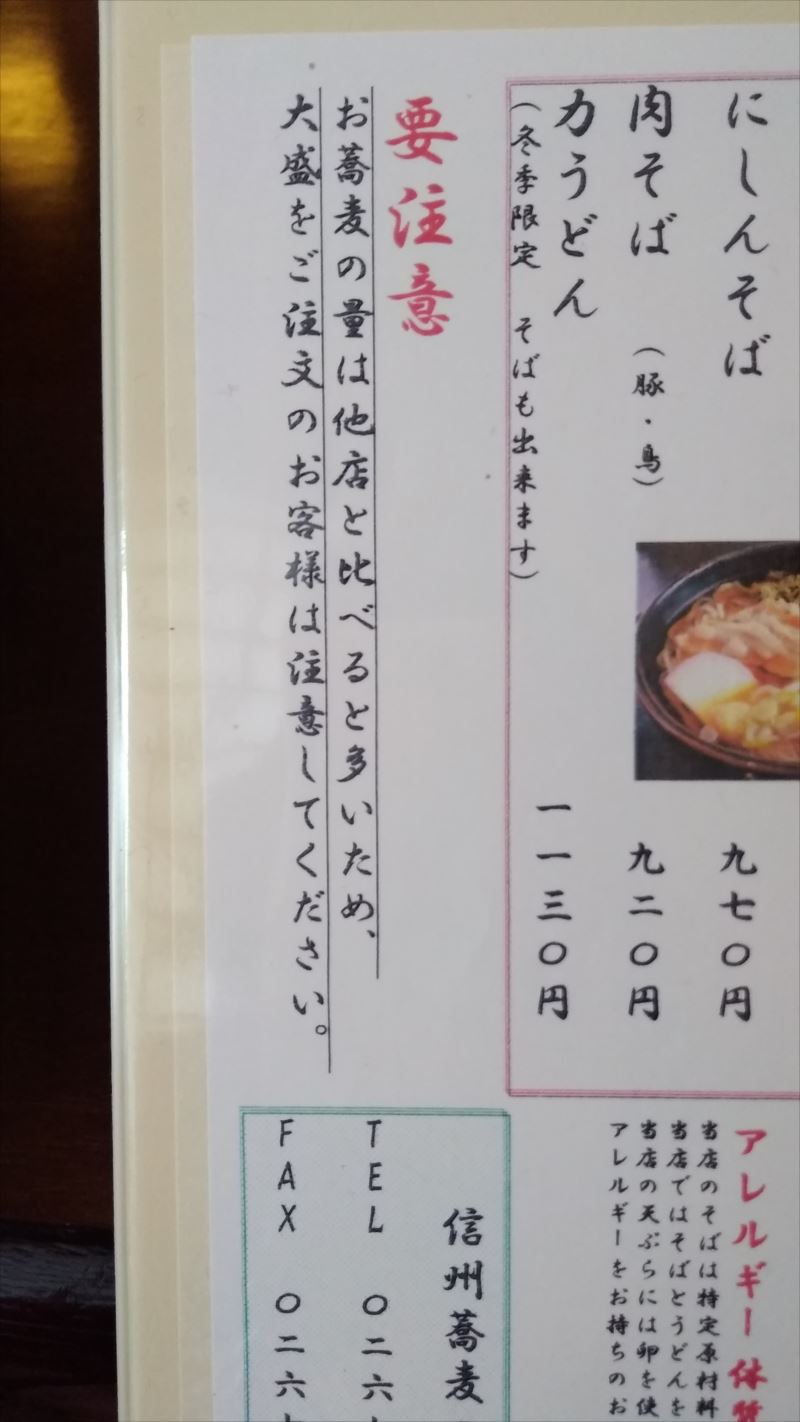 にしんそば 九七〇円
肉そば （豚・鳥） 九二〇円
力うどん 一一三〇円
（冬季限定 そばも出来ます）
要注意
お蕎麦の量は他店と比べると多いため、
大盛をご注文のお客様は注意してください。
アレルギー体
当店のそばは特定原材料
当店ではそばとうどんを
当店の天ぷらには卵を使
アレルギーをお持ちのお
信州蕎麦
TEL 〇二六
FAX 〇二六